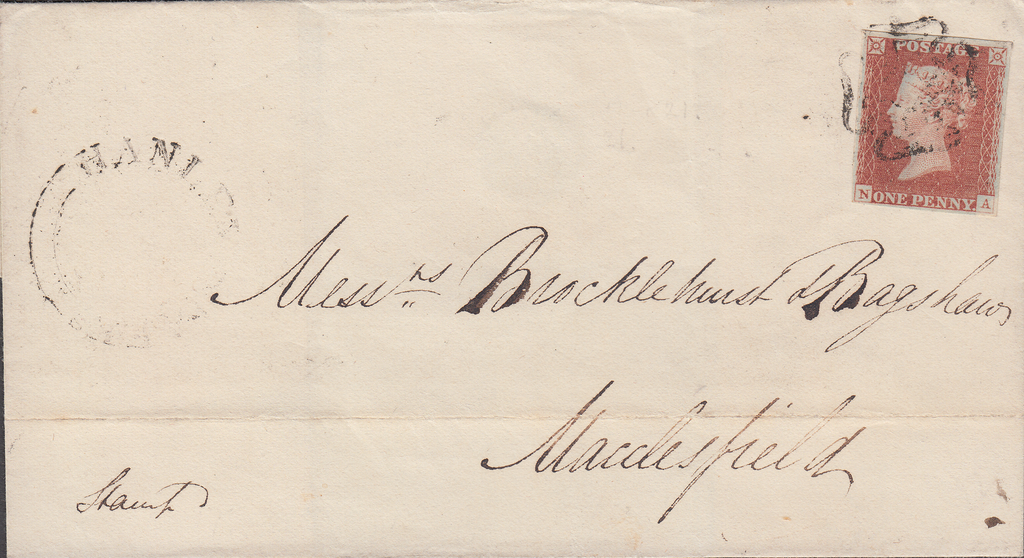 POSTAGE
N ONE PENNY A
HANLEY
Messrs Brocklehurst & Bagshaw
Macclesfield
Stamp